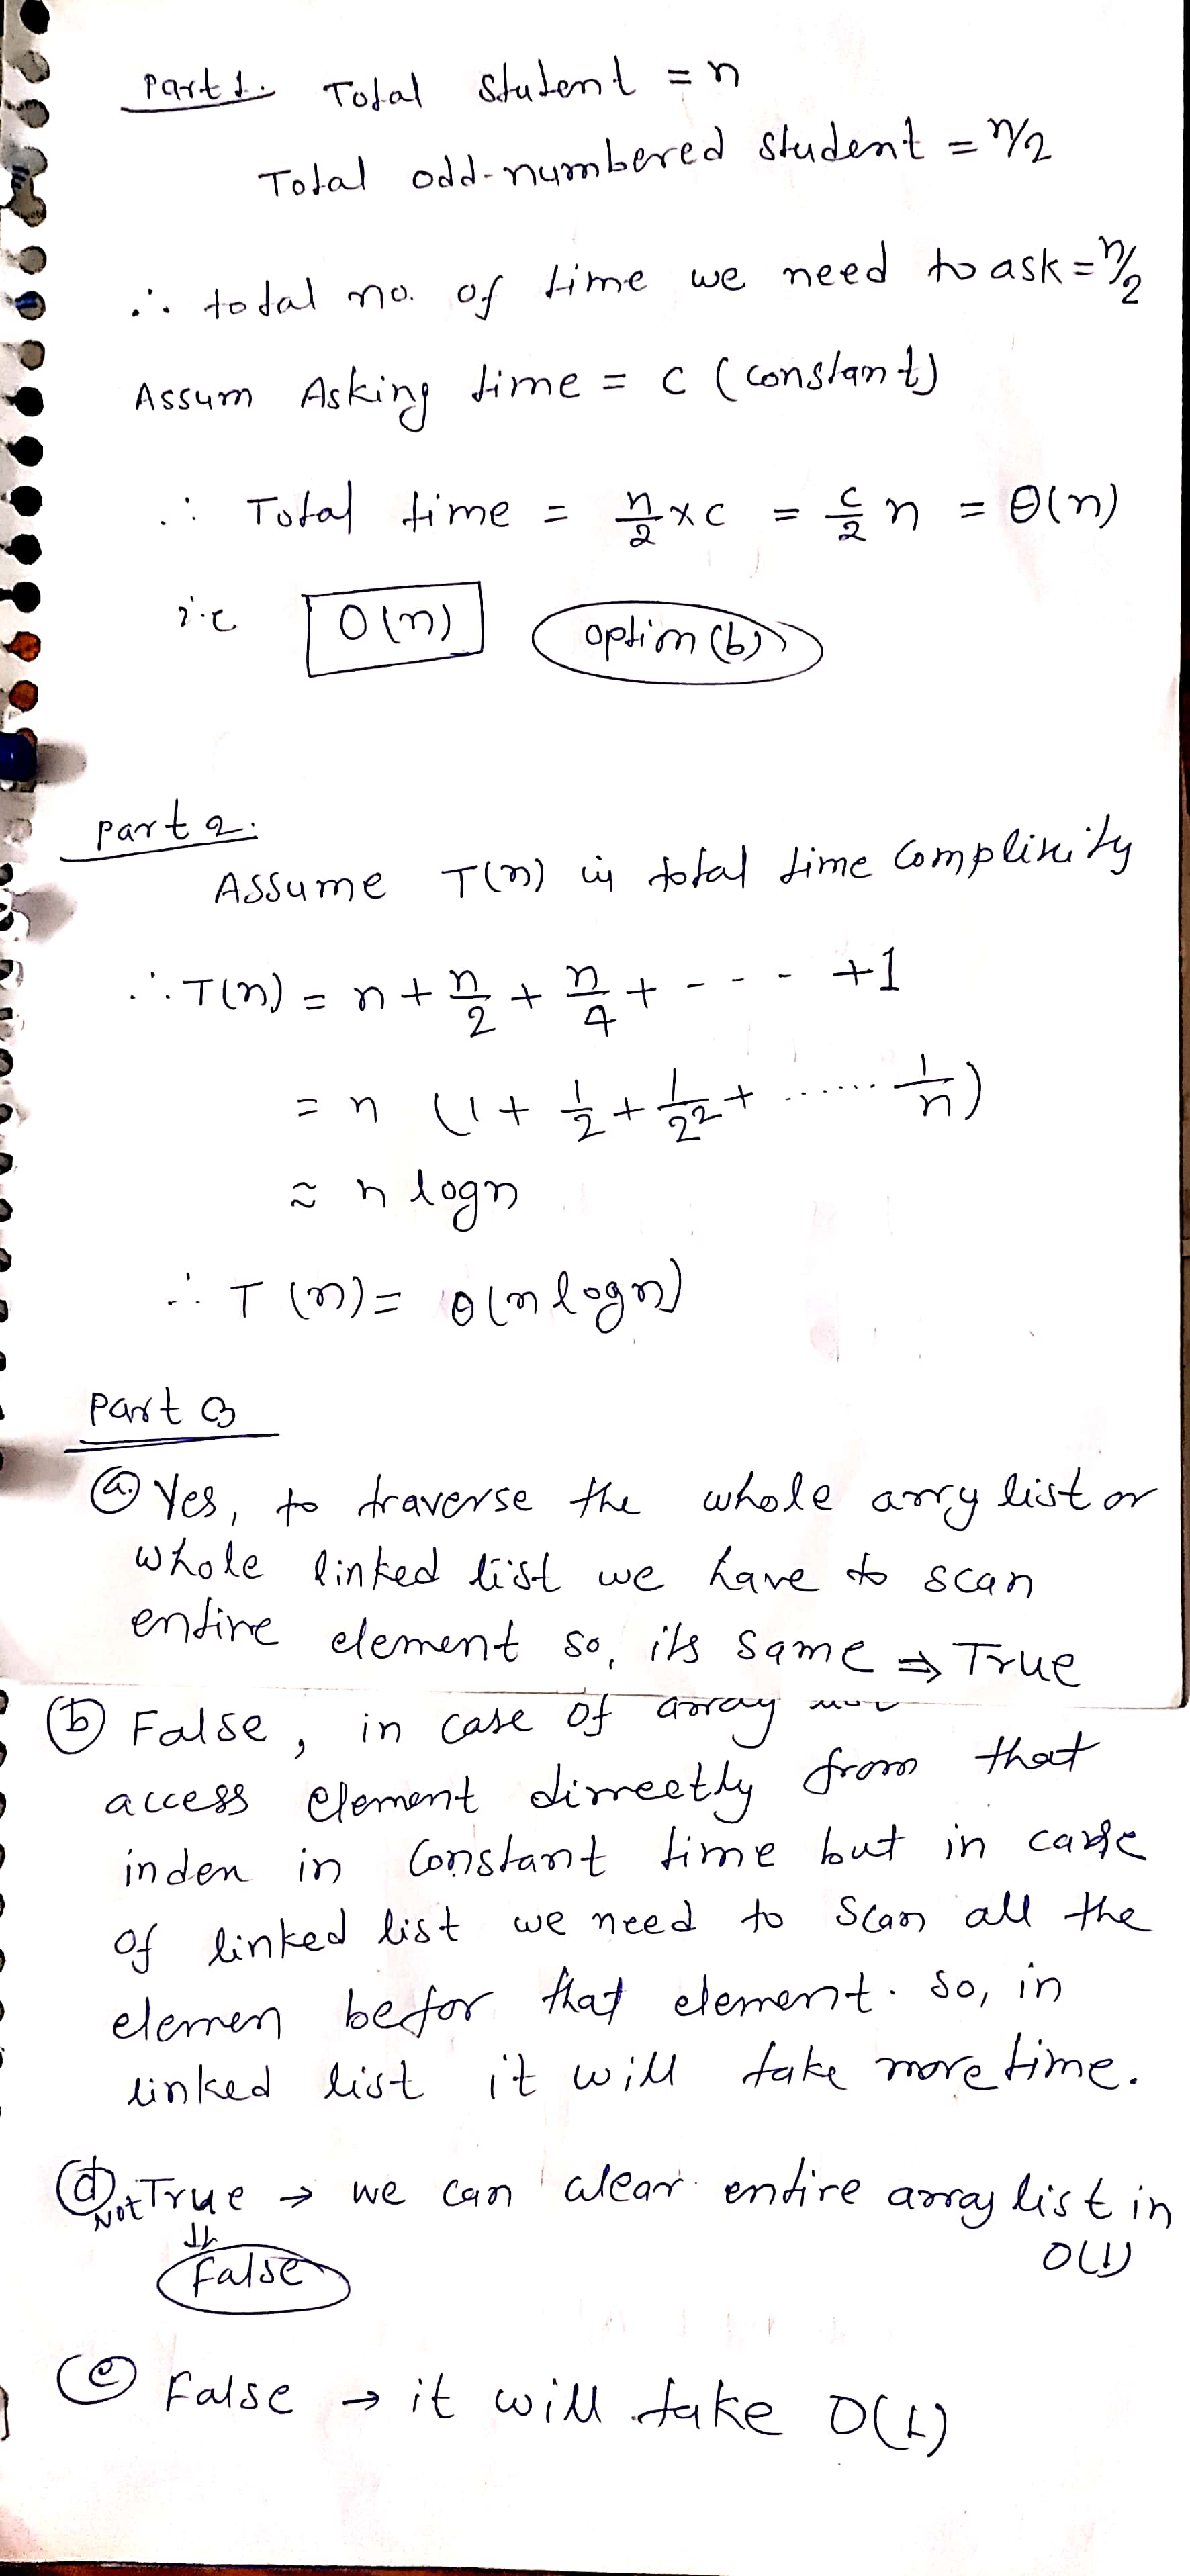 Part 1. Total student = n
Total odd-numbered student = n/2
∴ total no. of time we need to ask = n/2
Assum Asking time = c (constant)
∴ Total time = n/2 × c = c/2 n = θ(n)
i.e O(n) option (b)
part 2:
Assume T(n) is total time complixity
∴ T(n) = n + n/2 + n/4 + - - - - +1
= n (1 + 1/2 + 1/2² + ...... 1/n)
≈ n logn
∴ T(n) = θ(n logn)
Part 3
(a.) Yes, to traverse the whole arry list or
whole linked list we have to scan
entire element so, its same ⇒ True
(b) False, in case of array
access element dirrectly from that
inden in Constant time but in case
of linked list we need to scan all the
elemen befor that element. so, in
linked list it will take more time.
(d) Not True → we can clear entire array list in
O(1)
⇓
False
(e) False → it will take O(1)